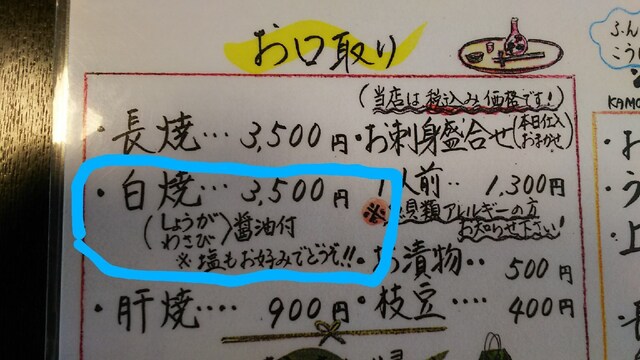 お口取り
(当店は税込み価格です!)
・長焼… 3,500円
・お刺身盛合せ(本日仕入 おまかせ)
・白焼… 3,500円
(しょうが わさび)醤油付
※塩もお好みでどうぞ!!
1人前‥ 1,300円
※
貝類アレルギーの方
お知らせ下さい!
・お漬物‥ 500円
・肝焼…. 900円
・枝豆…. 400円
KAMO